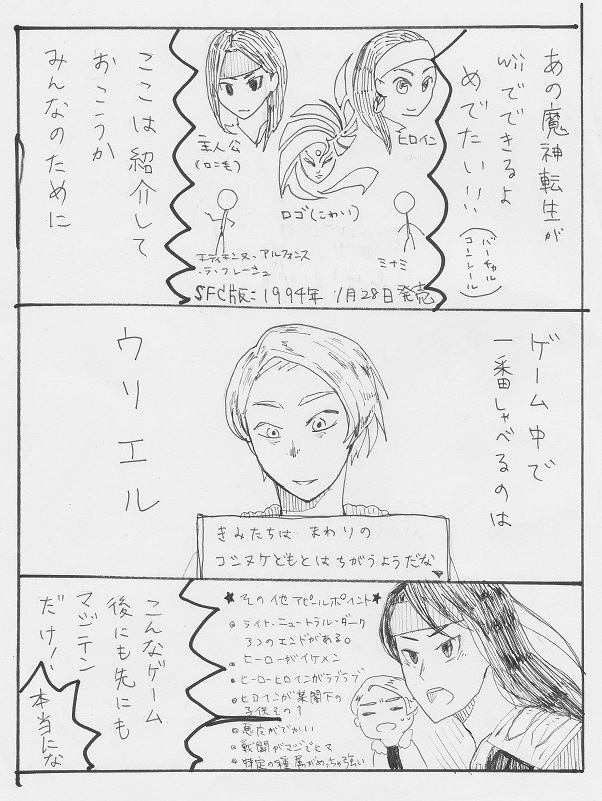 あの魔神転生が
Wiiでできるよ
めでたい!!!
(バーチャル
コンソール)
主人公
(ロン毛)
ヒロイン
ロゴ(こわい)
エティエンヌ・アルフォンス
・ラ・フレーシュ
ミナミ
SFC版: 1994年 1月28日発売
ここは紹介して
おこうか
みんなのために
ゲーム中で
一番しゃべるのは
ウリエル
きみたちは まわりの
コシヌケどもとはちがうようだな
★その他アピールポイント★
ライト・ニュートラル・ダーク
3つのエンドがある。
ヒーローがイケメン
ヒーローヒロインがラブラブ
ヒロインが某閣下の
子供その1
悪魔がでかい
戦闘がマジでヒマ
特定の種属がめっちゃ強い
こんなゲーム
後にも先にも
マジテン
だけ!
本当にな